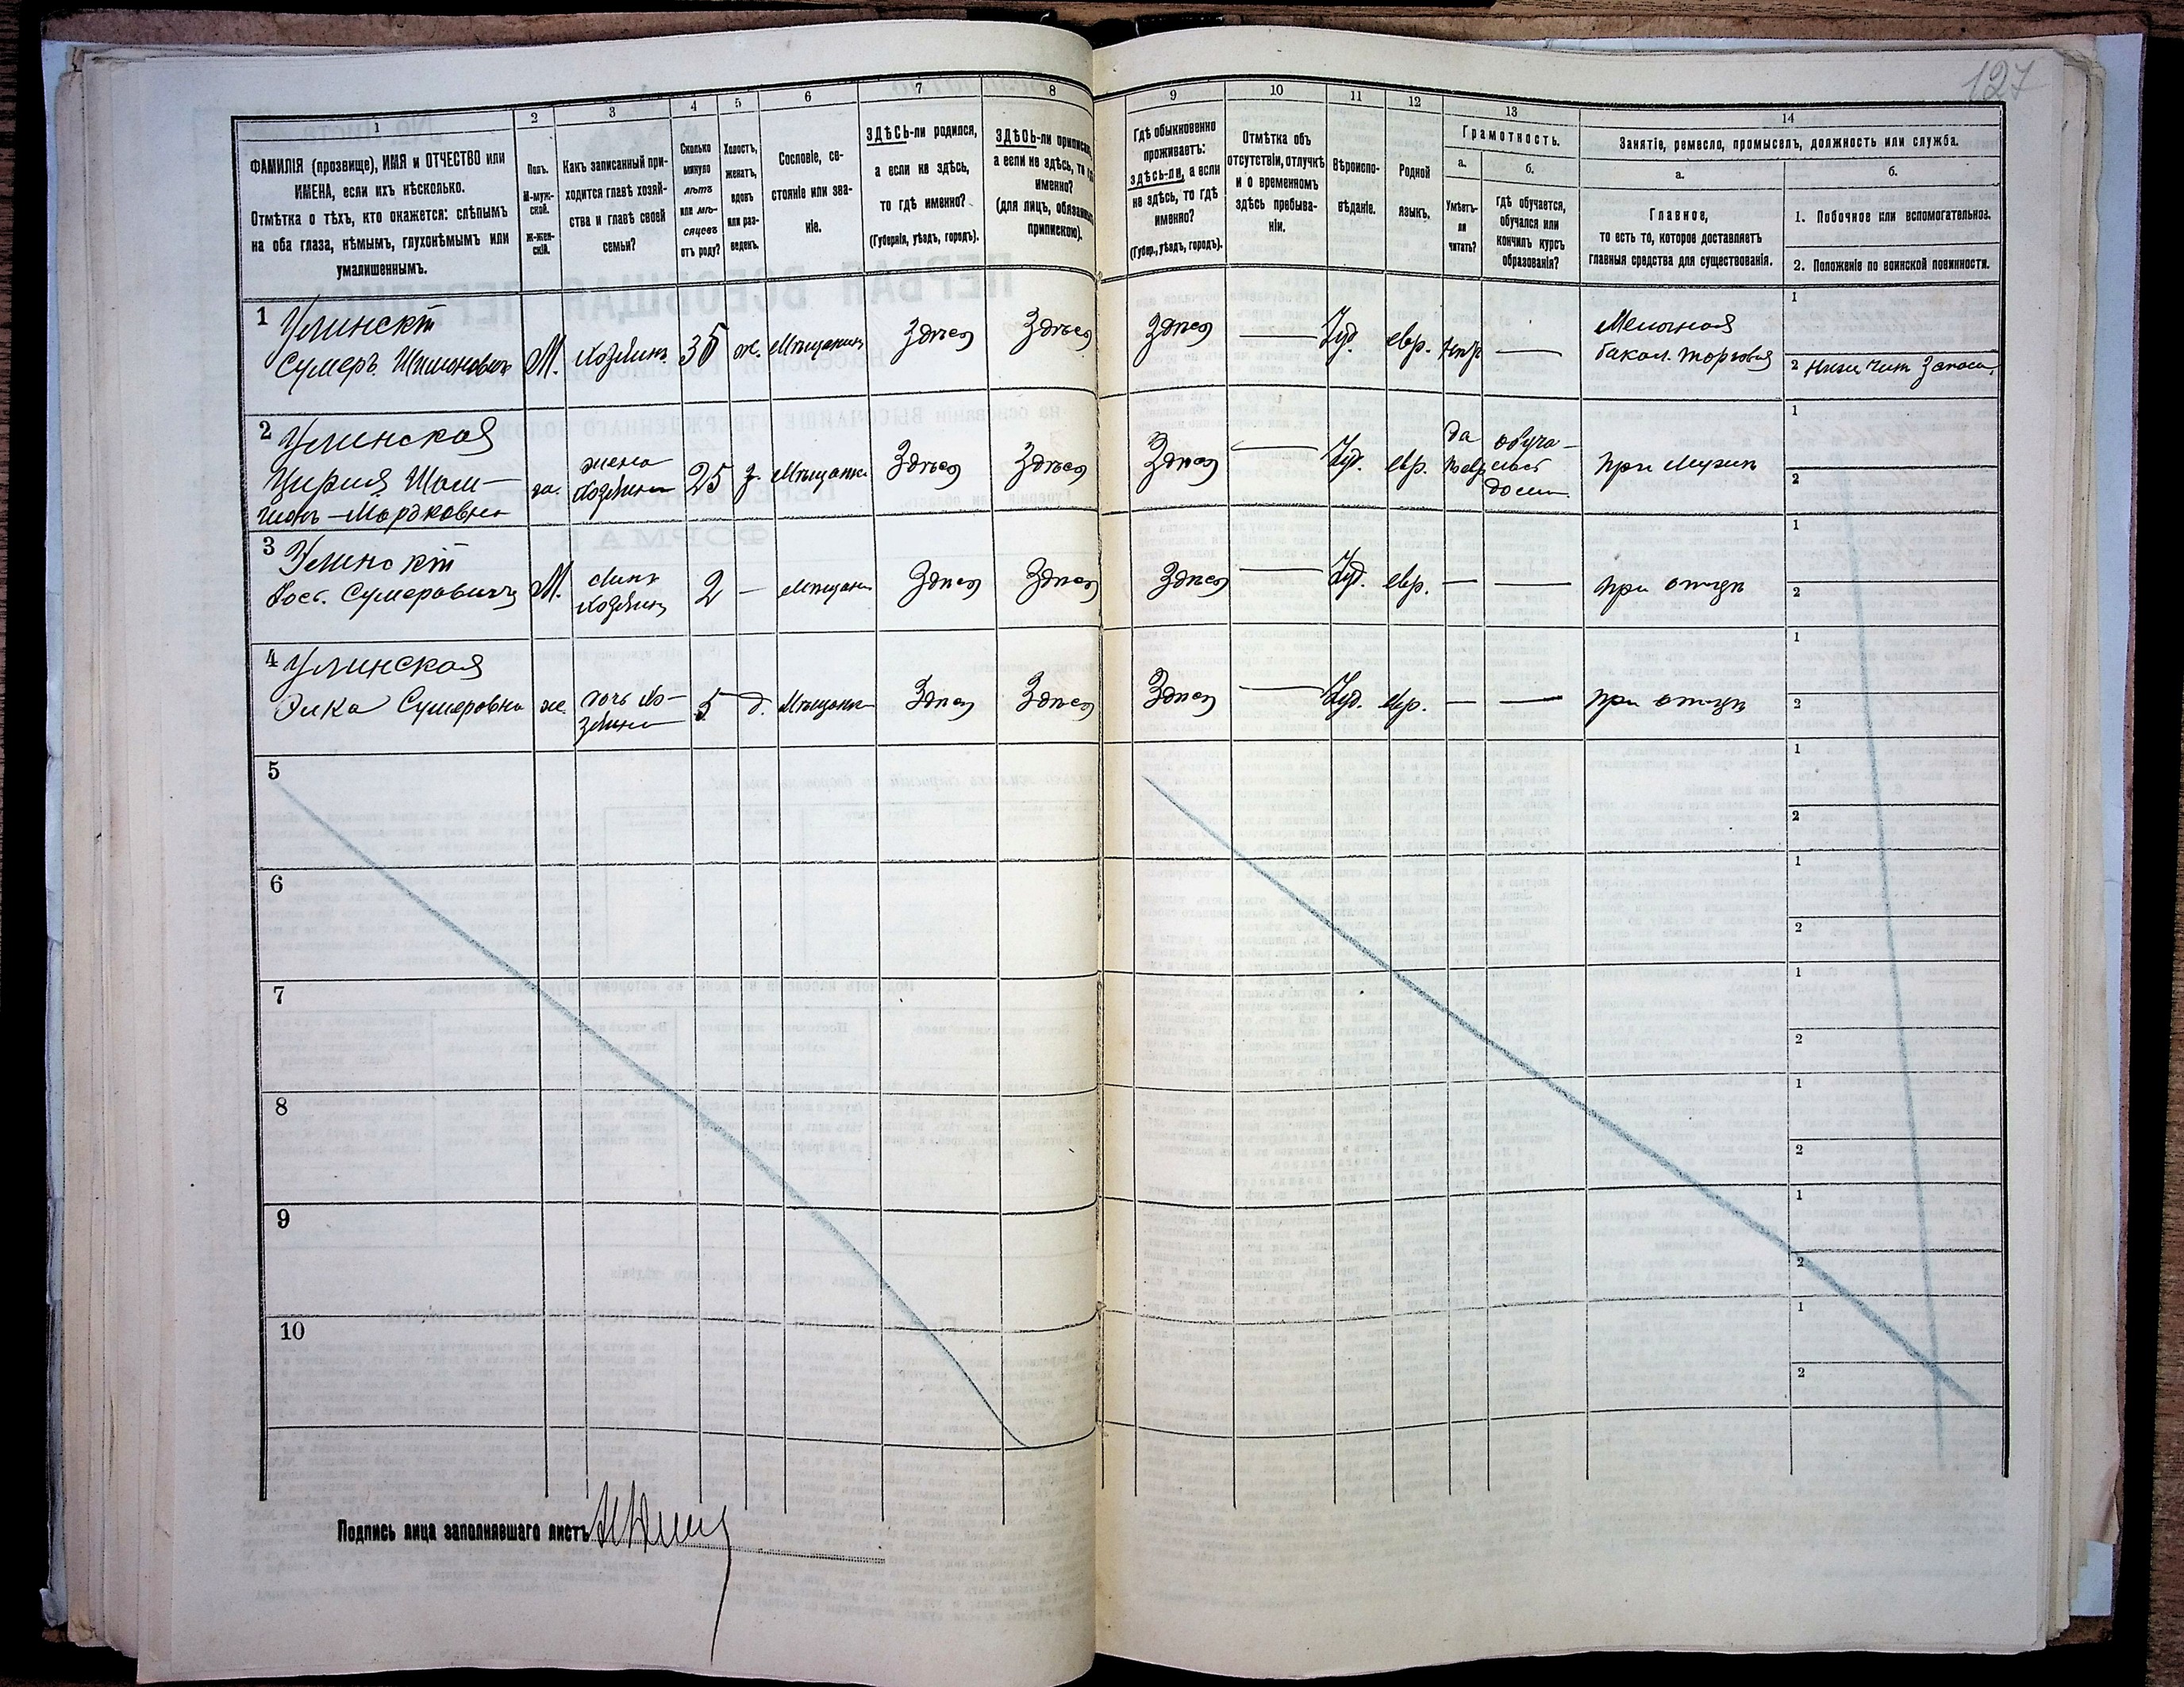 127
1 2 3 4 5 6 7 8 9 10 11 12 13 14
ФАМИЛІЯ (прозвище), ИМЯ и ОТЧЕСТВО или
ИМЕНА, если ихъ нѣсколько.
Отмѣтка о тѣхъ, кто окажется: слѣпымъ
на оба глаза, нѣмымъ, глухонѣмымъ или
умалишеннымъ.
Полъ.
М-муж-
ской.
Ж-жен-
скій.
Какъ записанный при-
ходится главѣ хозяй-
ства и главѣ своей
семьи?
Сколько
минуло
лѣтъ
или мѣ-
сяцевъ
отъ роду?
Холостъ,
женатъ,
вдовъ
или раз-
веденъ.
Сословіе, со-
стояніе или зва-
ніе.
ЗДѢСЬ-ли родился,
а если не здѣсь,
то гдѣ именно?
(Губернія, уѣздъ, городъ).
ЗДѢСЬ-ли приписанъ,
а если не здѣсь, то гдѣ
именно?
(для лицъ, обязанныхъ
припискою).
Гдѣ обыкновенно
проживаетъ:
здѣсь-ли, а если
не здѣсь, то гдѣ
именно?
(Губер., уѣздъ, городъ).
Отмѣтка объ
отсутствіи, отлучкѣ
и о временномъ
здѣсь пребыва-
ніи.
Вѣроиспо-
вѣданіе.
Родной
языкъ.
Грамотность.
а.
Умѣетъ-
ли
читать?
б.
Гдѣ обучается,
обучался или
кончилъ курсъ
образованія?
Занятіе, ремесло, промыселъ, должность или служба.
а.
Главное,
то есть то, которое доставляетъ
главныя средства для существованія.
б.
1. Побочное или вспомогательное.
2. Положеніе по воинской повинности.
1 Улинскій
Сумеръ Шимоновичъ М. Хозяинъ 35 ж. Мѣщанинъ Здѣсь Здѣсь Здѣсь — Іуд. евр. — Мелочная
бакал. торговля
1
2
2 Улинская
Цирля
Мордковна
жена
Хозяина 25 з. Мѣщанка Здѣсь Здѣсь Здѣсь — Іуд. евр. да обуча-
лась
дома
при мужѣ
1
2
3 Улинскій
Іос. Сумеровичъ М. сынъ
Хозяина 2 — Мѣщанинъ Здѣсь Здѣсь Здѣсь — Іуд. евр. — — при отцѣ
1
2
4 Улинская
Элка Сумеровна ж. дочь Хо-
зяина 5 д. Мѣщанка Здѣсь Здѣсь Здѣсь — Іуд. евр. — — при отцѣ
1
2
5
1
2
6
1
2
7
1
2
8
1
2
9
1
2
10
1
2
Подпись лица заполнявшаго листъ